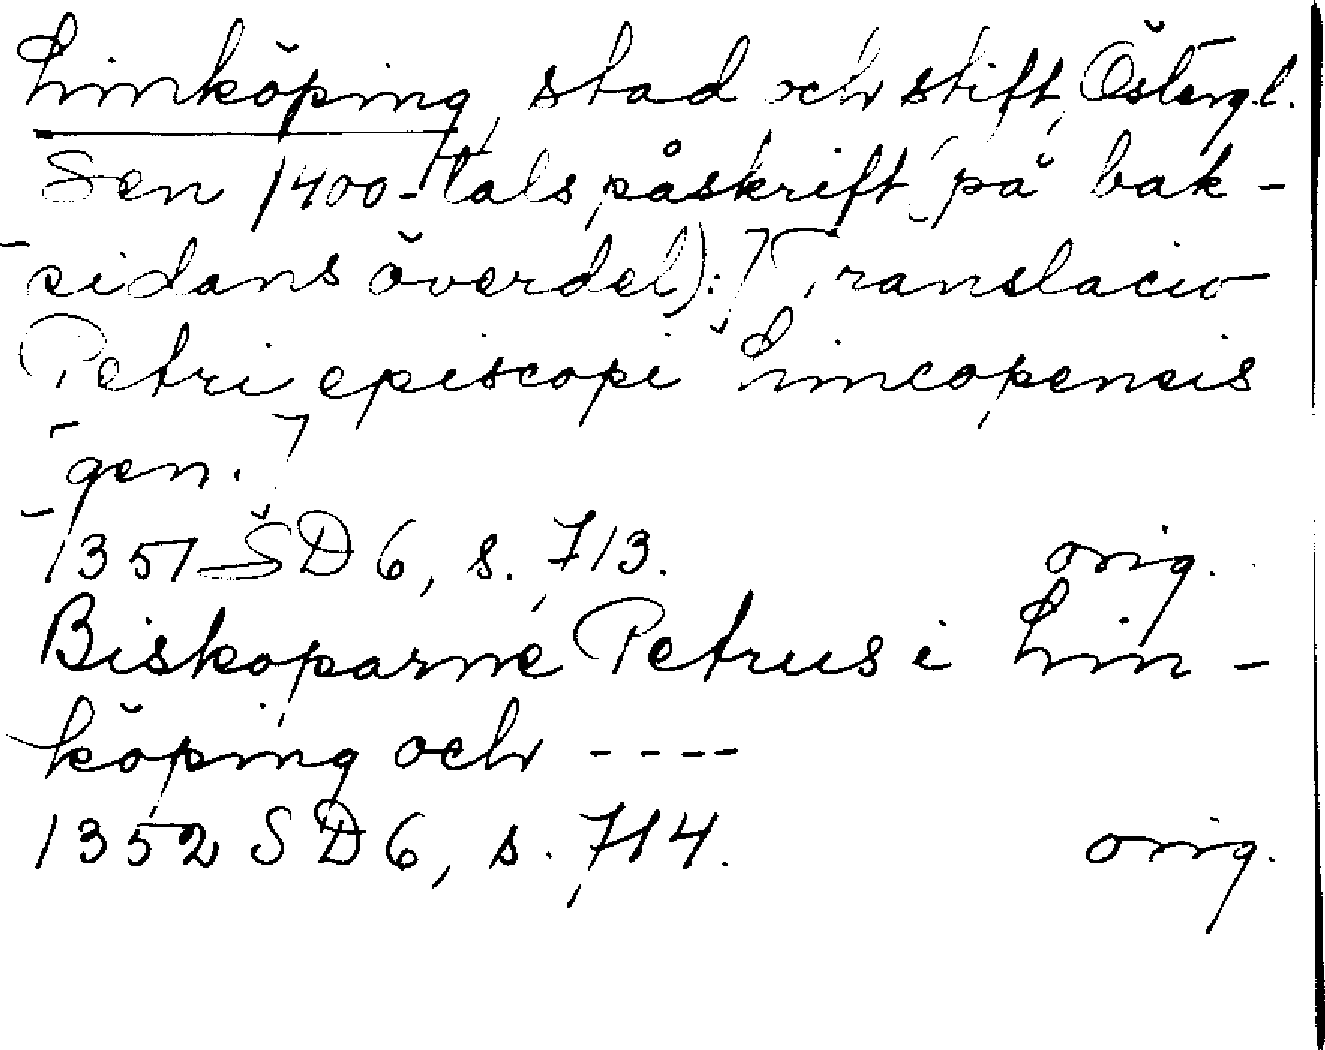 Linköping, stad och stift, Östergl.
Sen 1400-tals påskrift på bak-
sidans överdel): Translacio
Petri episcopi Lincopensis
gen.
1351 SD 6, s. 713. orig.
Biskoparne Petrus i Lin-
köping och ----
1352 SD 6, s. 714. orig.